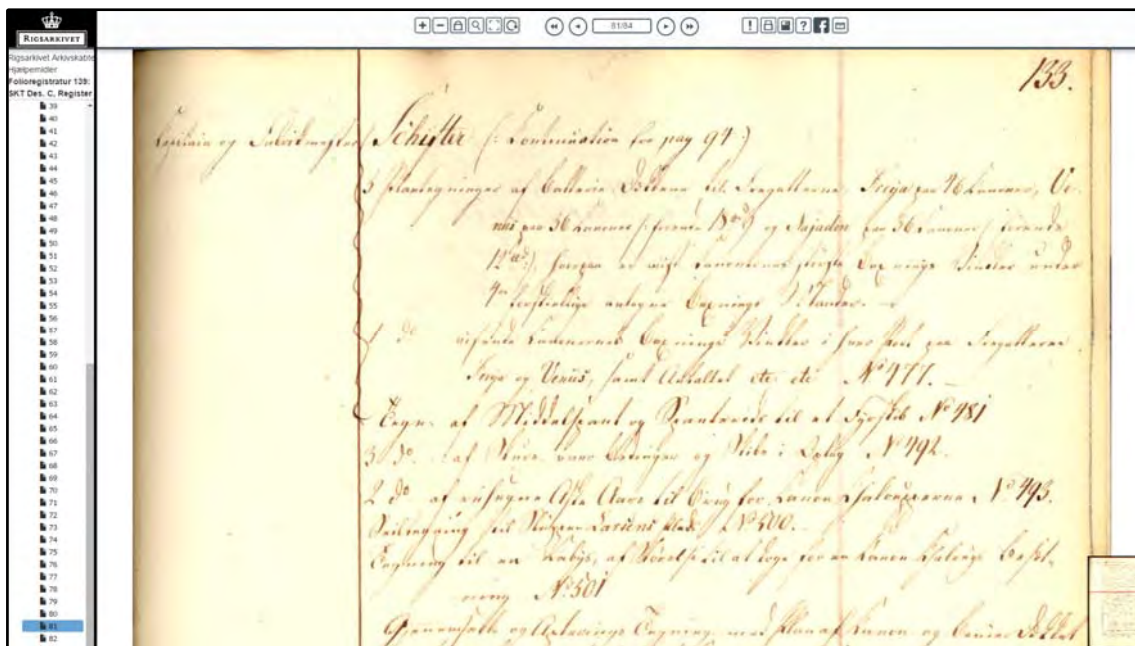 RIGSARKIVET
81/84
Rigsarkivet Arkivskabte
Hjælpemidler
Folioregistratur 139:
SKT Des. C, Register
39
40
41
42
43
44
45
46
47
48
49
50
51
52
53
54
55
56
57
58
59
60
61
62
63
64
65
66
67
68
69
70
71
72
73
74
75
76
77
78
79
80
81
82
133.
Capitain og Fabrikmester Schifter (: Continuation fra pag 94 :)
3 Plantegninger af Batterie Dækkene til Fregatterne Freya paa 46 Kanoner, Ve-
nus paa 36 Kanoner (: førende 18 :) og Najaden paa 36 Kanoner (: førende
12 :), hvorpaa er viist Kanonernes største Bax nings Vinkler under
forskiellige antagne Baxnings
1 do visende Kanonernes Baxnings Vinkler i hver Port paa Fregatterne
Freya og Venus, samt etc etc No 477.
Tegn. af Middelspant og Spanteruds til et Fyrskib No 481
3 do af og Skibe i Oplag No 492.
2 do af Aare til Brug for Kanon Chalouperne No 493.
Seiltegning til Larsens No 500.
Tegning til en Kabys, af Størrelse til at koge for en Kanon Besæt-
ning No 501
og Apterings Tegning med Plan af Kanon og Dækket